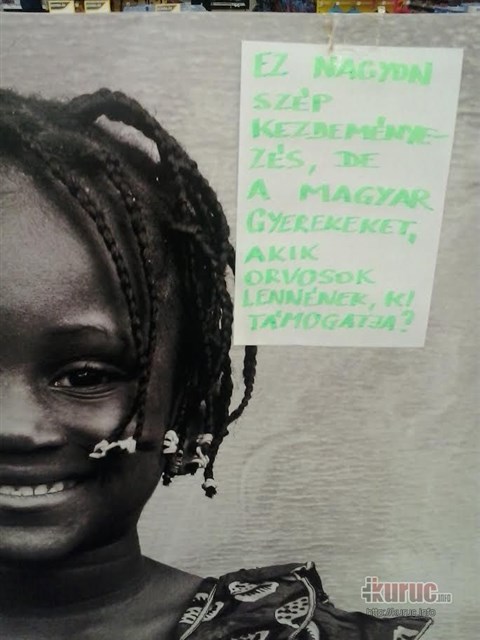 EZ NAGYON
SZÉP
KEZDEMÉNYE-
ZÉS, DE
A MAGYAR
GYEREKEKET,
AKIK
ORVOSOK
LENNÉNEK, KI
TÁMOGATJA?
kuruc.info
http://kuruc.info